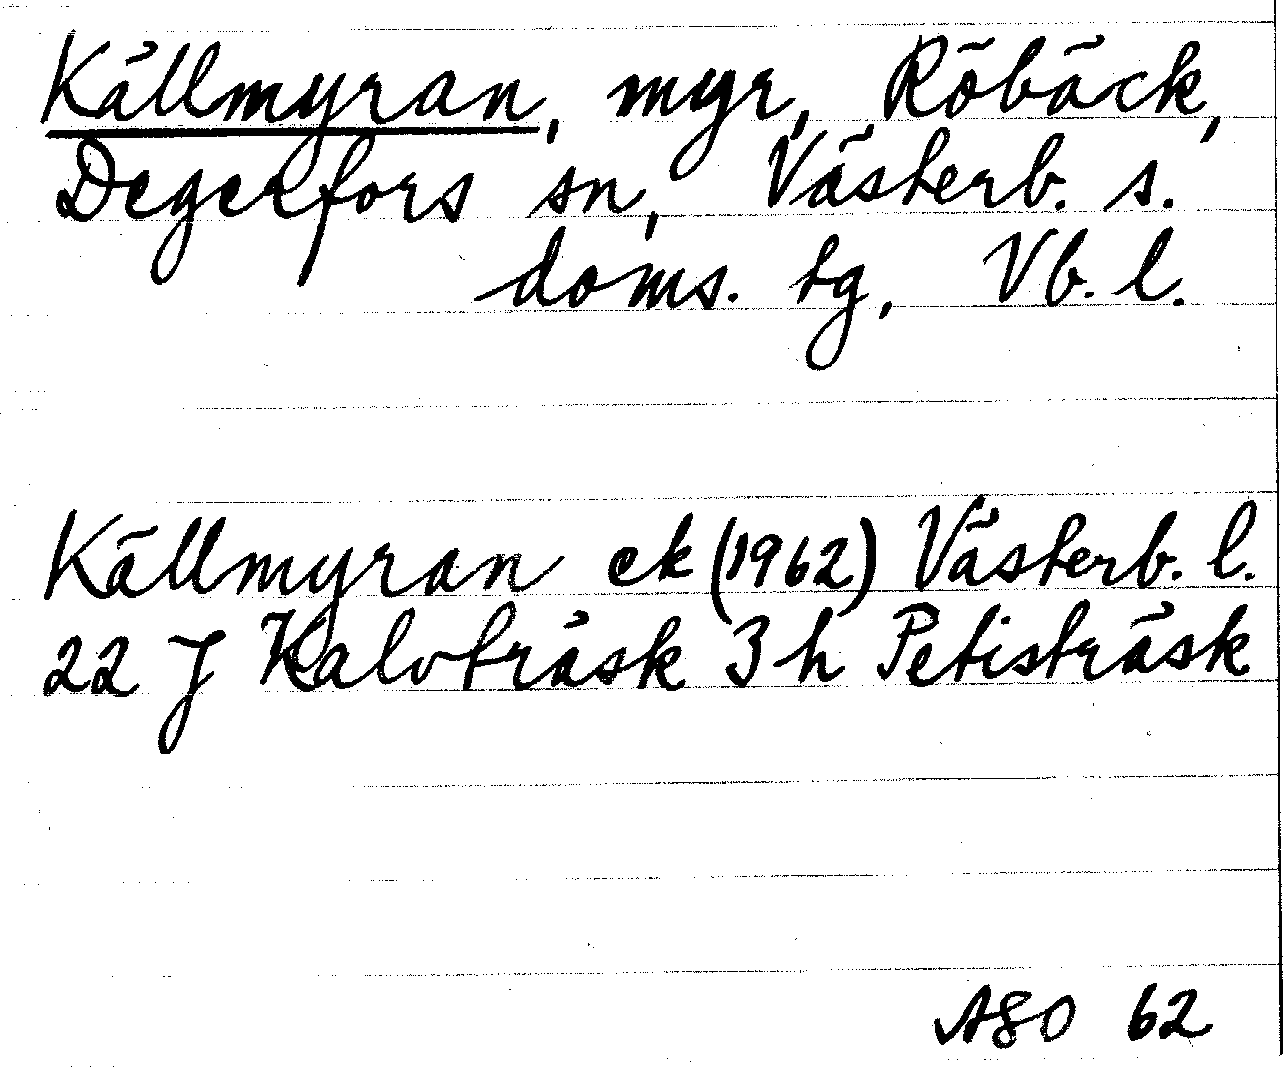 Källmyran, myr, Röbäck,
Degerfors sn, Västerb. s.
doms. tg, Vb. l.
Källmyran ek (1962) Västerb. l.
22 J Kalvträsk 3 h Petisträsk
ASO 62